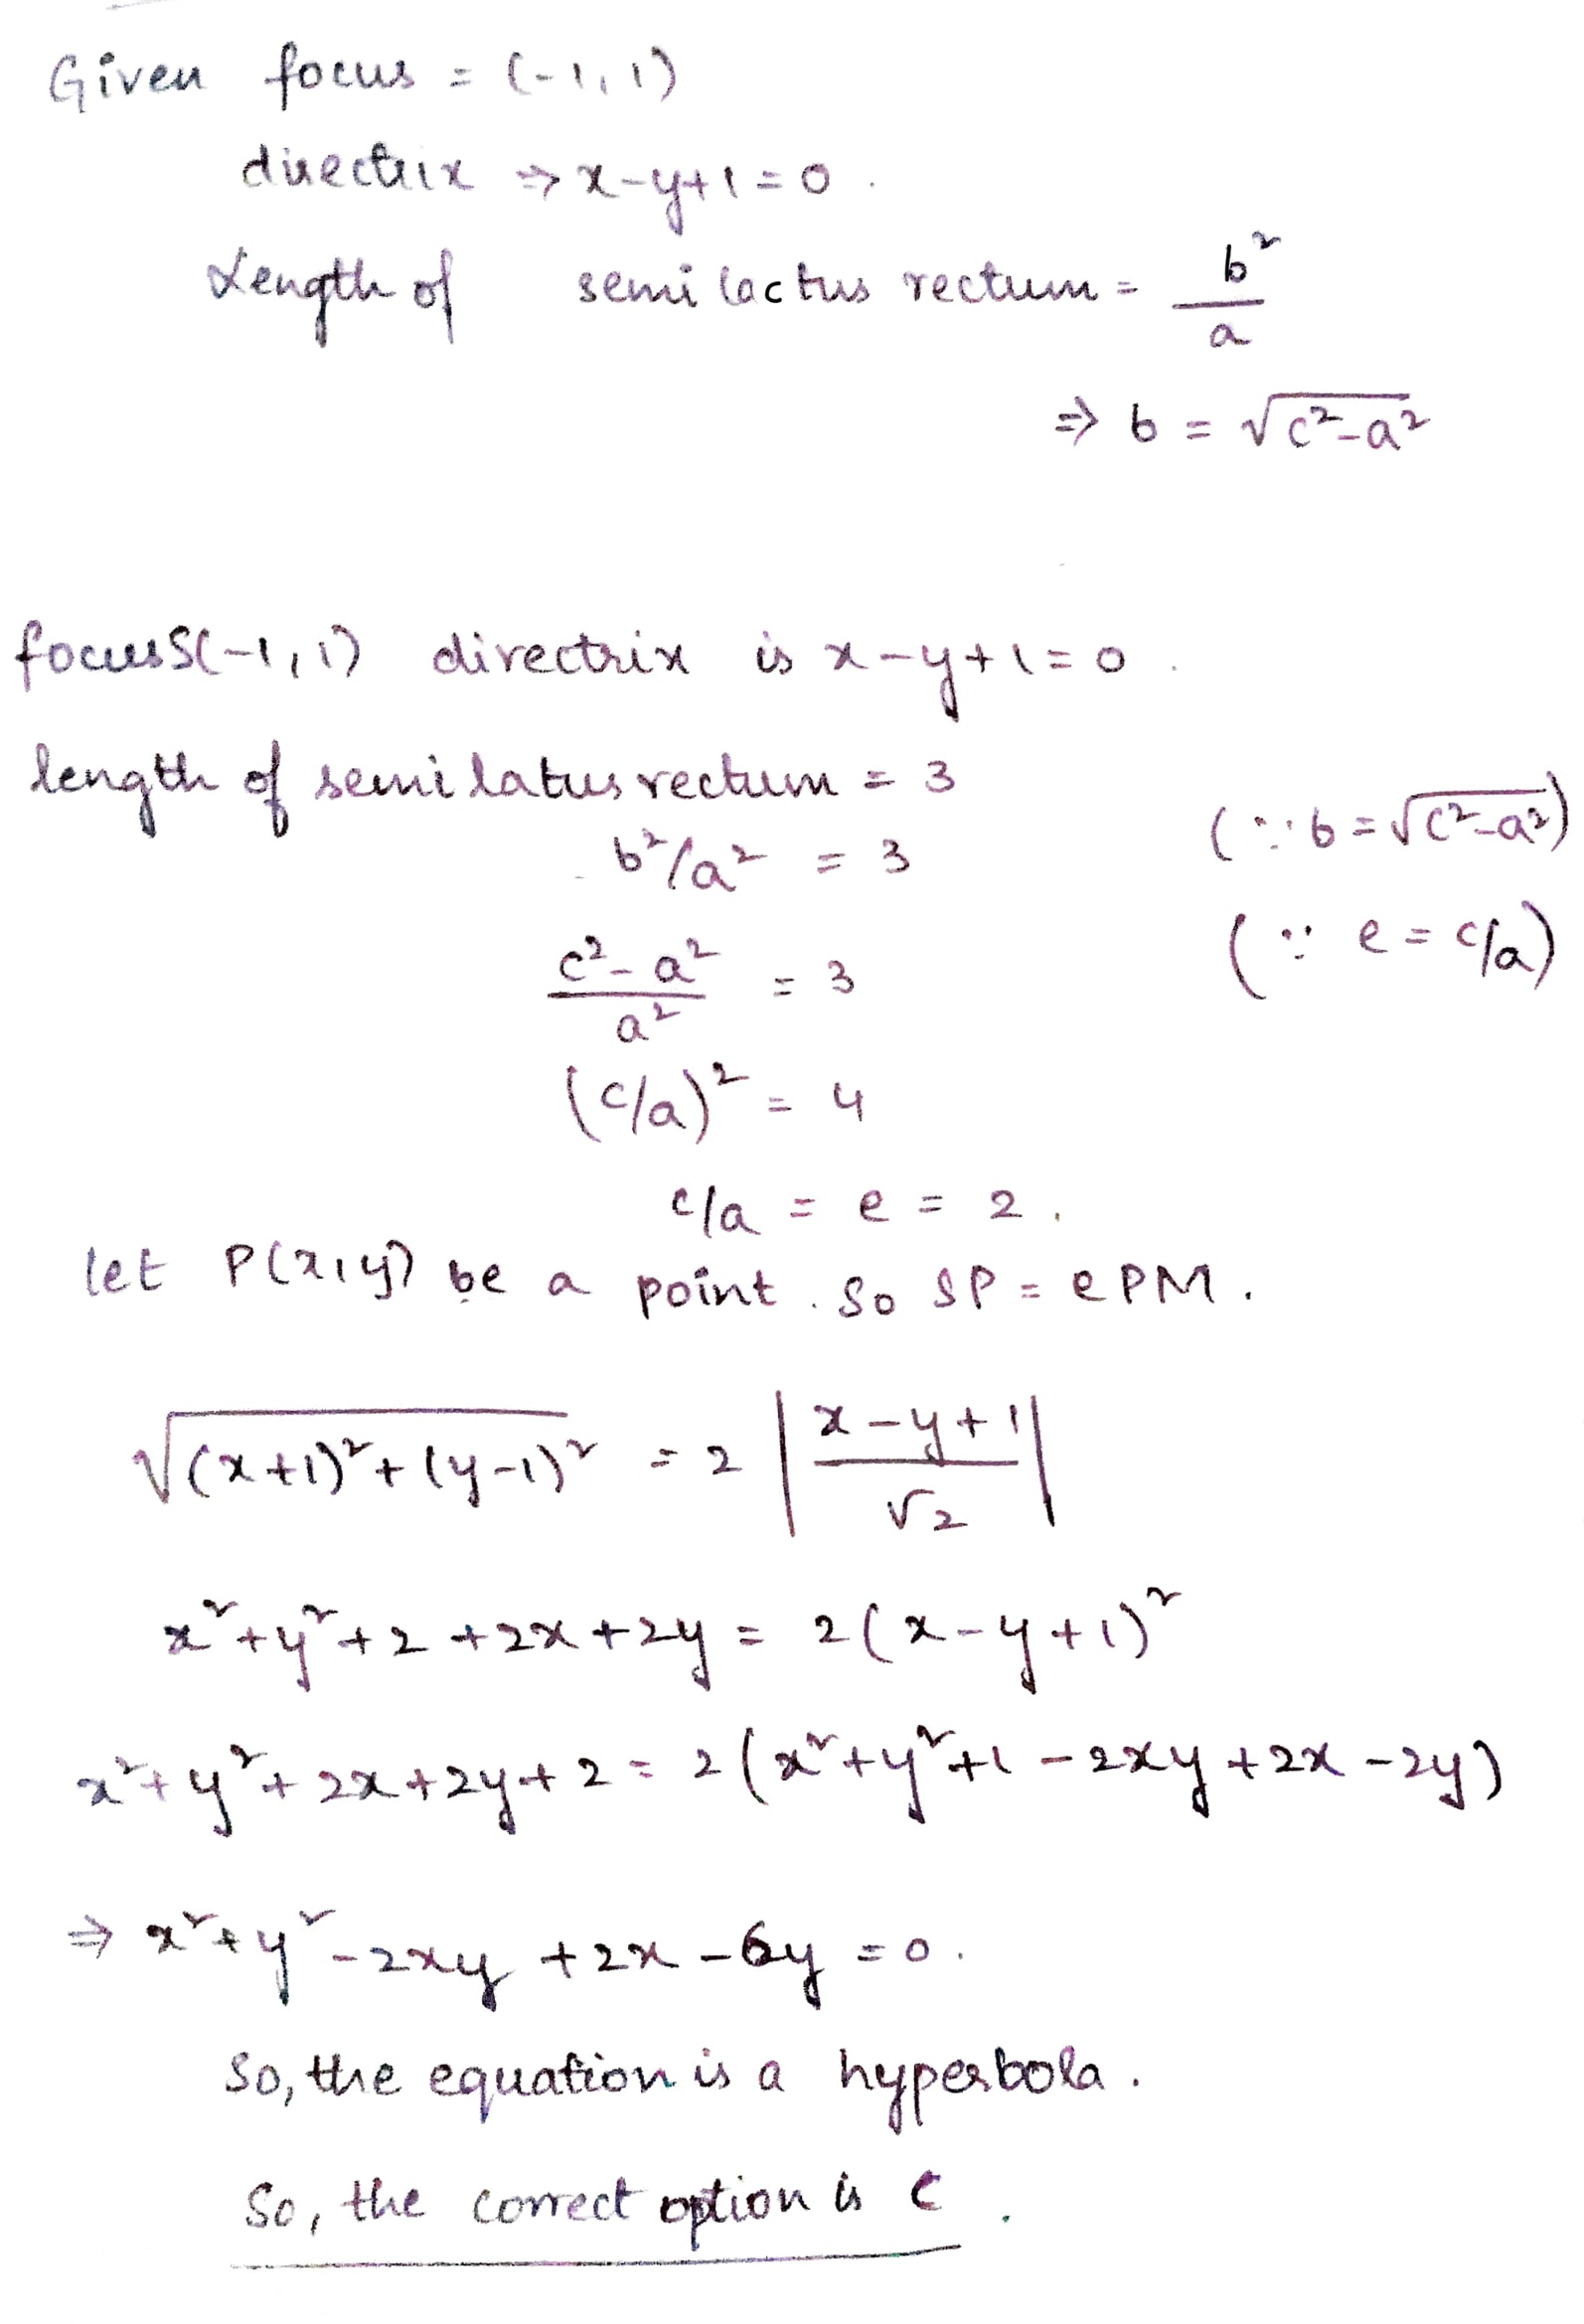 Given focus = (-1, 1)
directrix ⇒ x-y+1=0.
Length of semi lactus rectum = b²/a
⇒ b = √(c²-a²)
focus S(-1, 1) directrix is x-y+1=0.
length of semi latus rectum = 3
b²/a² = 3 (∵ b = √(c²-a²))
(c²-a²)/a² = 3 (∵ e = c/a)
(c/a)² = 4
c/a = e = 2.
let P(x,y) be a point. So SP = e PM.
√((x+1)²+(y-1)²) = 2 |(x-y+1)/√2|
x²+y²+2+2x+2y = 2(x-y+1)²
x²+y²+2x+2y+2 = 2(x²+y²+1-2xy+2x-2y)
⇒ x²+y²-2xy+2x-6y=0.
So, the equation is a hyperbola.
So, the correct option is C.